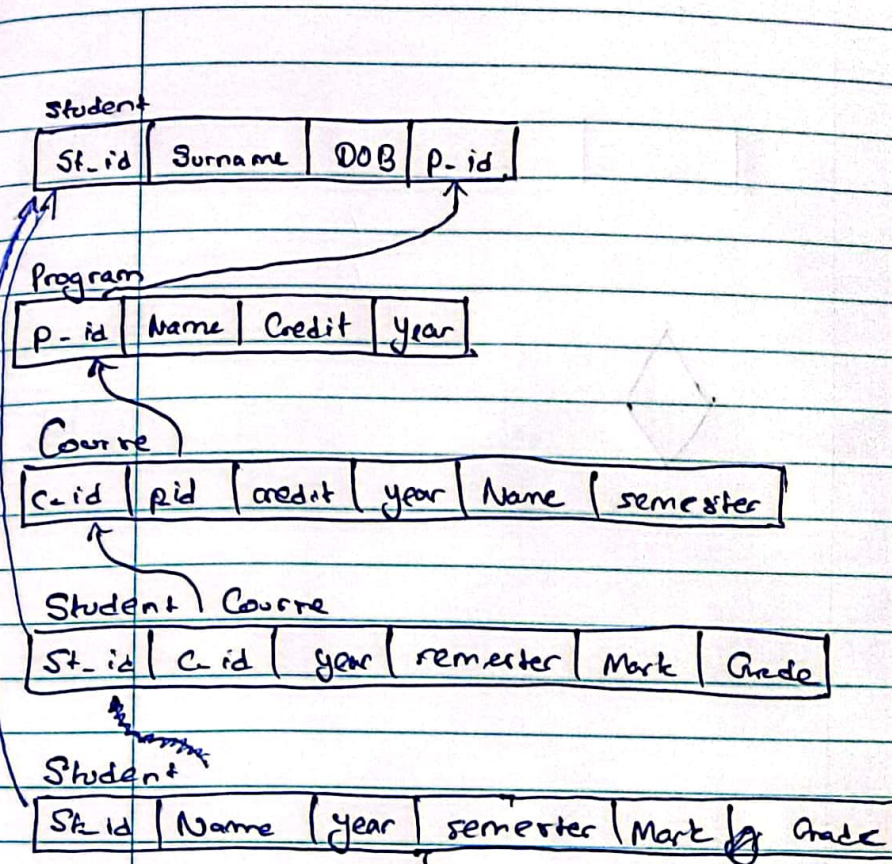 Student
St_id Surname DOB P_id
Program
P_id Name Credit year
Course
C_id pid credit year Name semester
Student Course
St_id C_id year semester Mark Grade
Student
St_id Name year semester Mark Grade